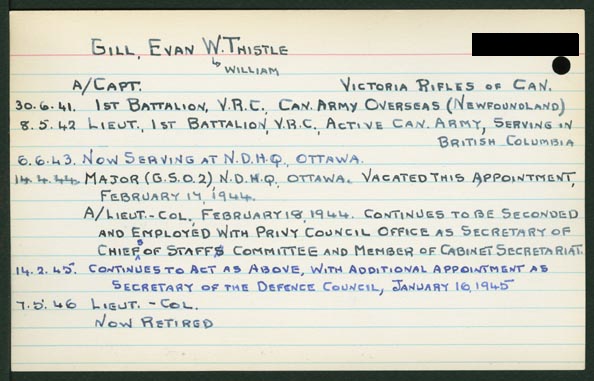 GILL, EVAN W. THISTLE
WILLIAM
A/CAPT. VICTORIA RIFLES OF CAN.
30.6.41. 1ST BATTALION, V.R.C., CAN. ARMY OVERSEAS (NEWFOUNDLAND)
8.5.42 LIEUT., 1ST BATTALION, V.R.C., ACTIVE CAN. ARMY, SERVING IN
BRITISH COLUMBIA
6.6.43. NOW SERVING AT N.D.H.Q. OTTAWA.
14.4.44. MAJOR (G.S.O.2) N.D.H.Q. OTTAWA. VACATED THIS APPOINTMENT,
FEBRUARY 17, 1944.
A/LIEUT.-COL. FEBRUARY 18, 1944. CONTINUES TO BE SECONDED
AND EMPLOYED WITH PRIVY COUNCIL OFFICE AS SECRETARY OF
CHIEFS OF STAFFS COMMITTEE AND MEMBER OF CABINET SECRETARIAT.
14.2.45. CONTINUES TO ACT AS ABOVE, WITH ADDITIONAL APPOINTMENT AS
SECRETARY OF THE DEFENCE COUNCIL, JANUARY 16, 1945
7.5.46 LIEUT.-COL.
NOW RETIRED